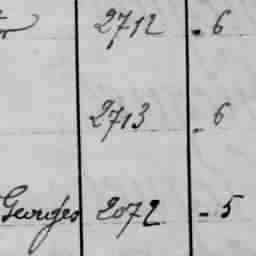 2712 - 6
2713 - 6
Georges 2072 - 5